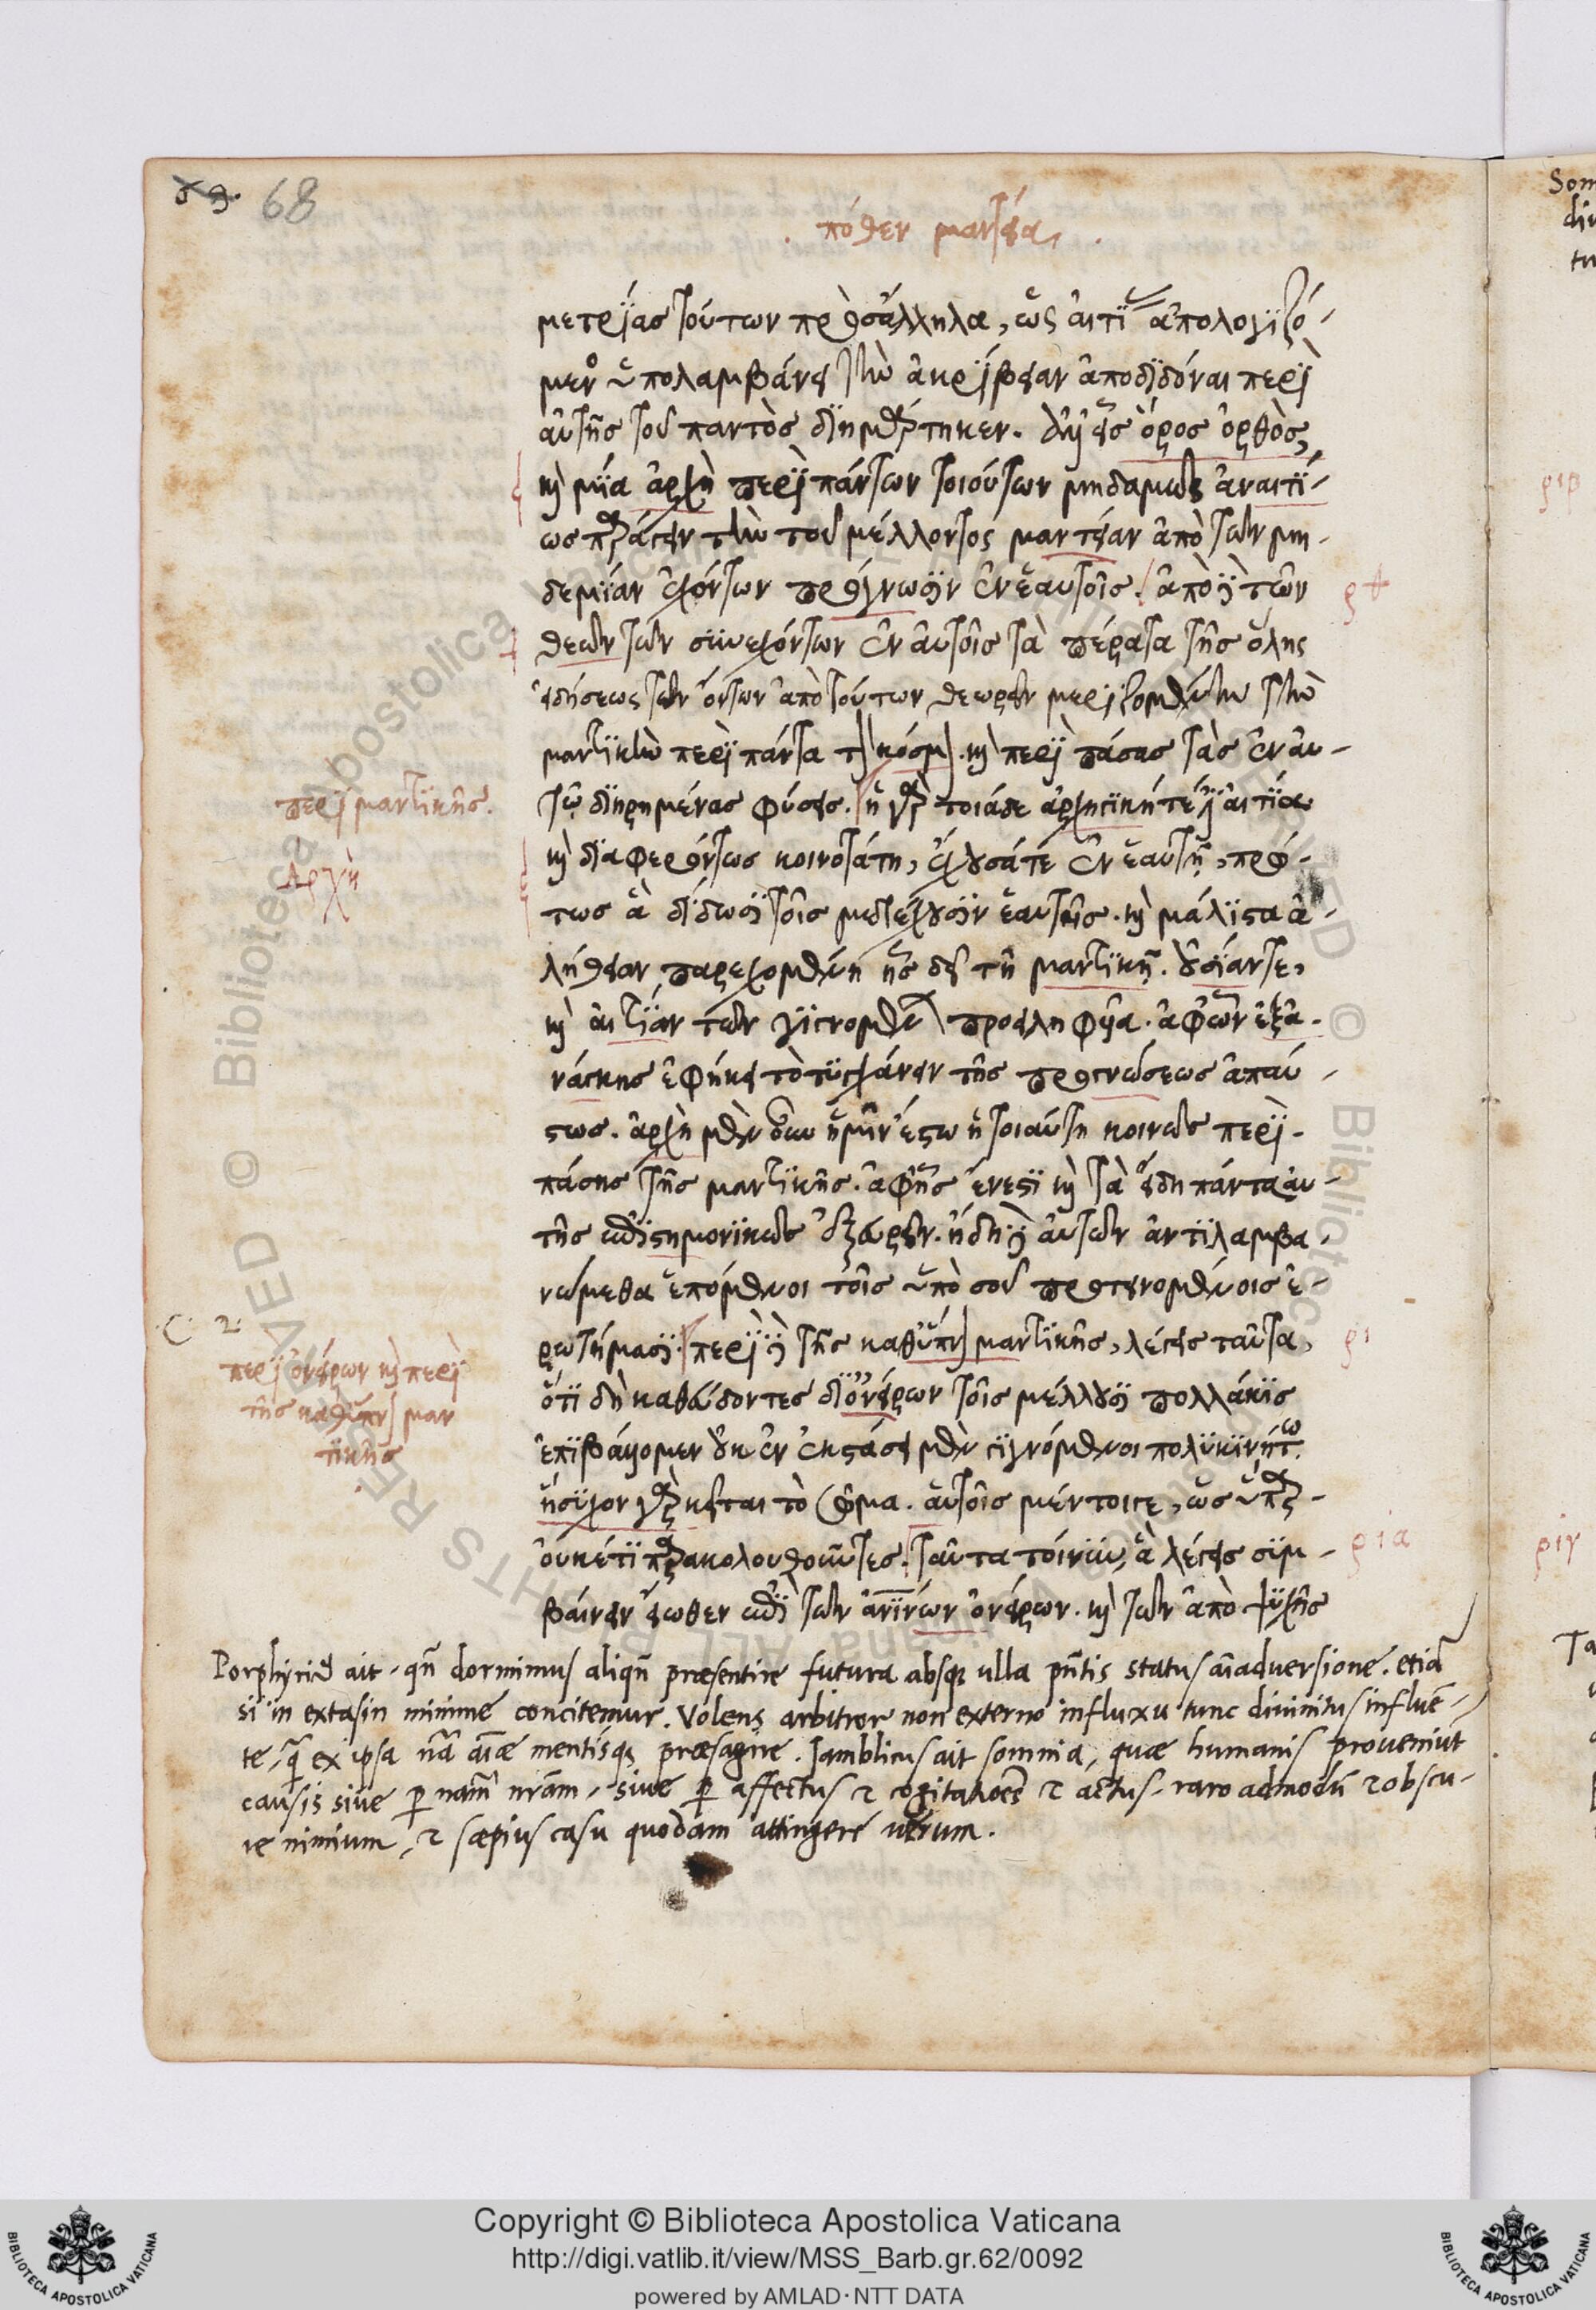 68
πόθεν μαντεία
μετρίας τούτων πρὸς ἄλληλα, ὡς αἰτίας ἀπολογιζό-
μενος ὑπολαμβάνει τὴν ἀκρίβειαν ἀποδιδόναι περὶ
αὐτῆς τοῦ παντὸς διημάρτηκεν. ἀλλ' εἷς ὅρος ὀρθὸς,
καὶ μία ἀρχὴ περὶ πάντων τοιούτων μηδαμῶς ἀναιτί-
ως παράγειν τὴν τοῦ μέλλοντος μαντείαν ἀπὸ τῶν μη-
δεμίαν ἐχόντων πρόγνωσιν ἐν ἑαυτοῖς. ἀπὸ δὲ τῶν
θεῶν τῶν συνεχόντων ἐν αὐτοῖς τὰ πέρατα τῆς ὅλης
εἰδήσεως τῶν ὄντων ἀπὸ τούτων θεωρεῖν μεριζομένην τὴν
μαντικὴν περὶ πάντα τὸν κόσμον. καὶ περὶ πάσας τὰς ἐν αὐ-
τῷ διῃρημένας φύσεις. ἡ γὰρ τοιάδε ἀρχηγική τέ ἐστι αἰτία
καὶ διαφερόντως κοινοτάτη, ἔχουσά τε ἐν ἑαυτῇ, πρώ-
τως ἃ δίδωσι τοῖς μετέχουσιν ἑαυτῆς. καὶ μάλιστα ἀ-
λήθειαν παρεχομένη ἧς δεῖ τῇ μαντικῇ. οὐσίαν τε,
καὶ αἰτίαν τῶν γιγνομένων προειληφυῖα. ἀφ' ὧν ἐξ ἀ-
νάγκης ἐφήκει τὸ τυγχάνειν τῆς προγνώσεως ἀπταύ-
στως. ἀρχὴ μὲν οὖν ἡμῖν ἔστω ἡ τοιαύτη κοινῶς περὶ
πάσης τῆς μαντικῆς. ἀφ' ἧς ἔνεστι καὶ τὰ εἴδη πάντα αὐ-
τῆς ἐπιστημονικῶς ἐξευρεῖν. ἤδη δὲ αὐτῶν ἀντιλαμβα-
νώμεθα ἑπόμενοι τοῖς ὑπὸ σοῦ προτεινομένοις ἐ-
ρωτήμασι. περὶ δὲ τῆς καθ' ὕπνον μαντικῆς, λέγεις ταῦτα,
ὅτι δὴ καθεύδοντες δι' ὀνείρων τοῖς μέλλουσι πολλάκις
ἐπιβάλλομεν οὐκ ἐν ἐκστάσει μὲν γιγνόμενοι πολυκινήτῳ
ἥσυχον γὰρ κεῖται τὸ σῶμα. αὐτοῖς μέντοιγε, ὡς ὕπαρ
οὐκέτι παρακολουθοῦντες. ταῦτα τοίνυν, ἃ λέγεις συμ-
βαίνειν εἴωθεν ἐπὶ τῶν ἀνθρωπίνων ὀνείρων. καὶ τῶν ἀπὸ ψυχῆς
περὶ μαντικῆς.
Ἀρχὴ
C. 2
περὶ ὀνείρων καὶ περὶ
τῆς καθ' ὕπνον μαν
τικῆς
ρι
ρια
Porphyriꝰ ait. qñ dormimus aliqñ præsentire futura absqꝫ ulla pñtis status aĩadversione. etiã
si in extasin minime concitemur. Volens arbitror non externo influxu tunc divinitus influẽ-
te, ex ipsa nã aĩæ mentisqꝫ præsagire. Iamblicus ait somnia, quæ humanis proveniũt
causis sive p nam̃ nrãm, sive p affectus & cogitatiões & actus. raro admodũ & obscu-
re nimium, & sæpius casu quodam attingere verum.
Copyright © Biblioteca Apostolica Vaticana
http://digi.vatlib.it/view/MSS_Barb.gr.62/0092
powered by AMLAD·NTT DATA